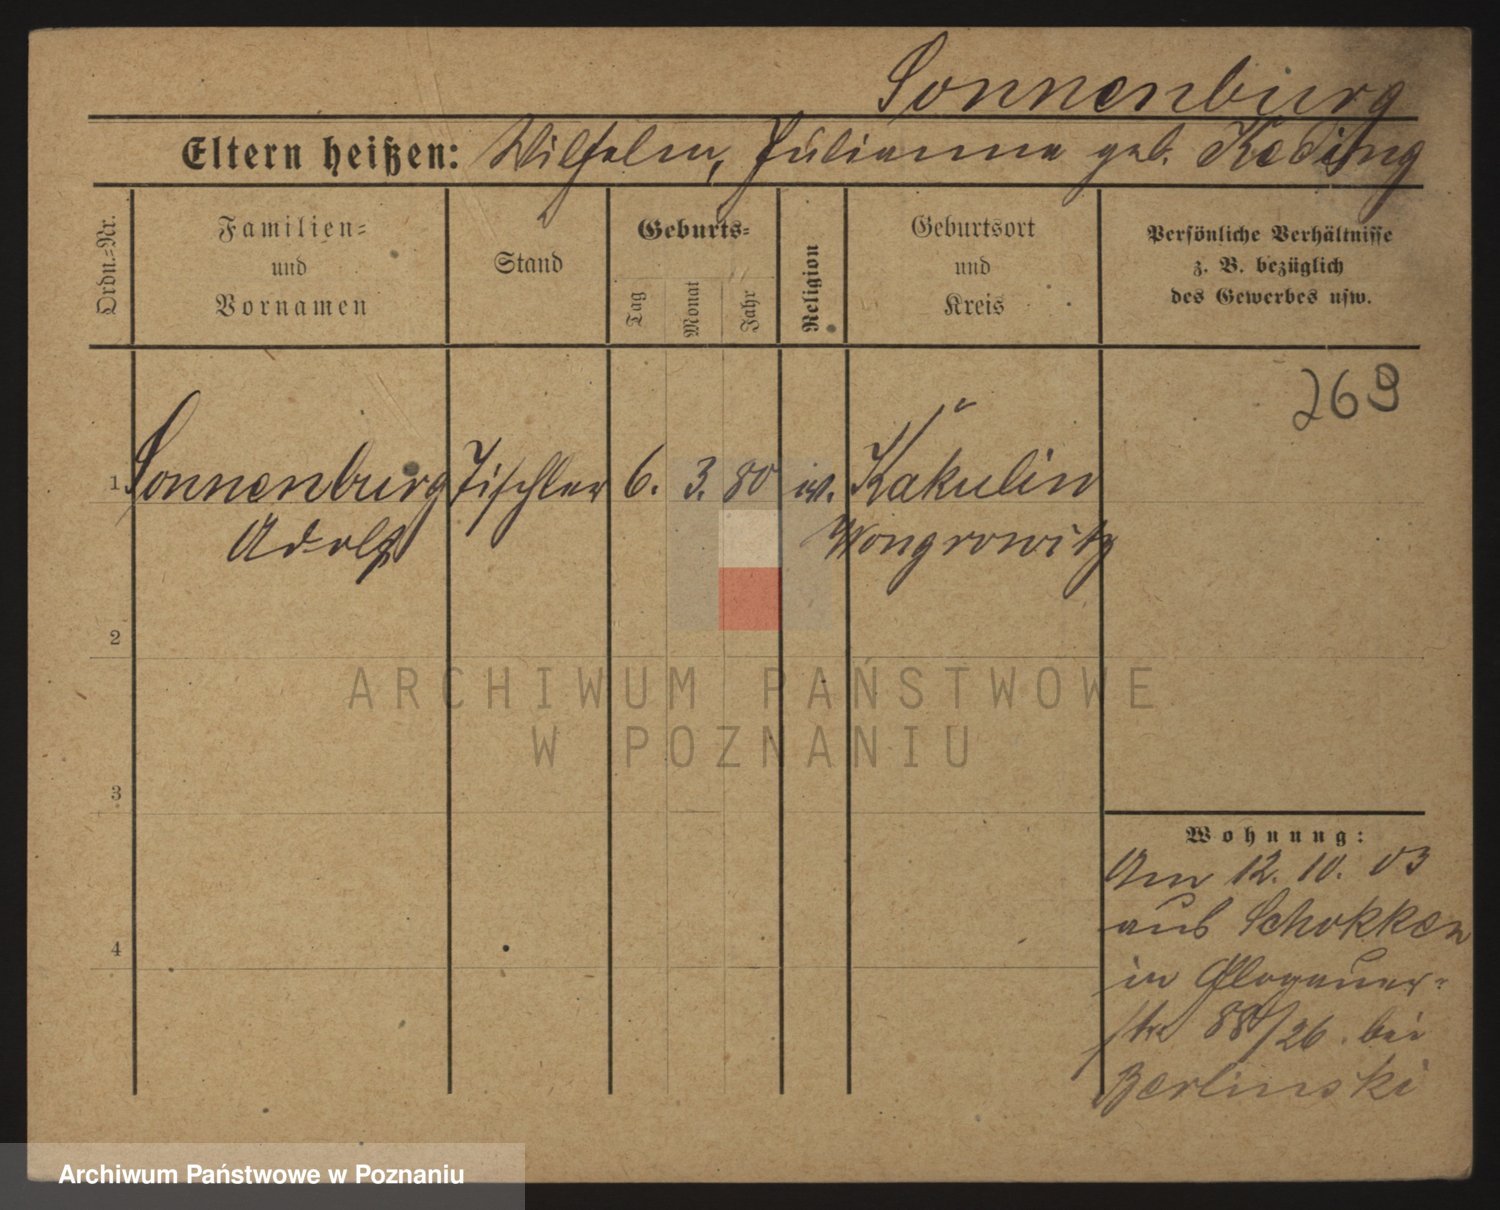 Sonnenburg
Eltern heißen: Wilhelm, Julianna geb. Keding
Ordn.-Nr.
Familien-
und
Vornamen
Stand
Geburts-
Tag
Monat
Jahr
Religion
Geburtsort
und
Kreis
Persönliche Verhältnisse
z. B. bezüglich
des Gewerbes usw.
269
1 Sonnenburg Tischler 6. 3. 80 ev. Kakulin
Adolf Wongrowitz
2
3
4
ARCHIWUM PAŃSTWOWE
W POZNANIU
Wohnung:
Am 12. 10. 03
aus Schokken
in Glogauer-
str 88/26. bei
Berlinski
Archiwum Państwowe w Poznaniu